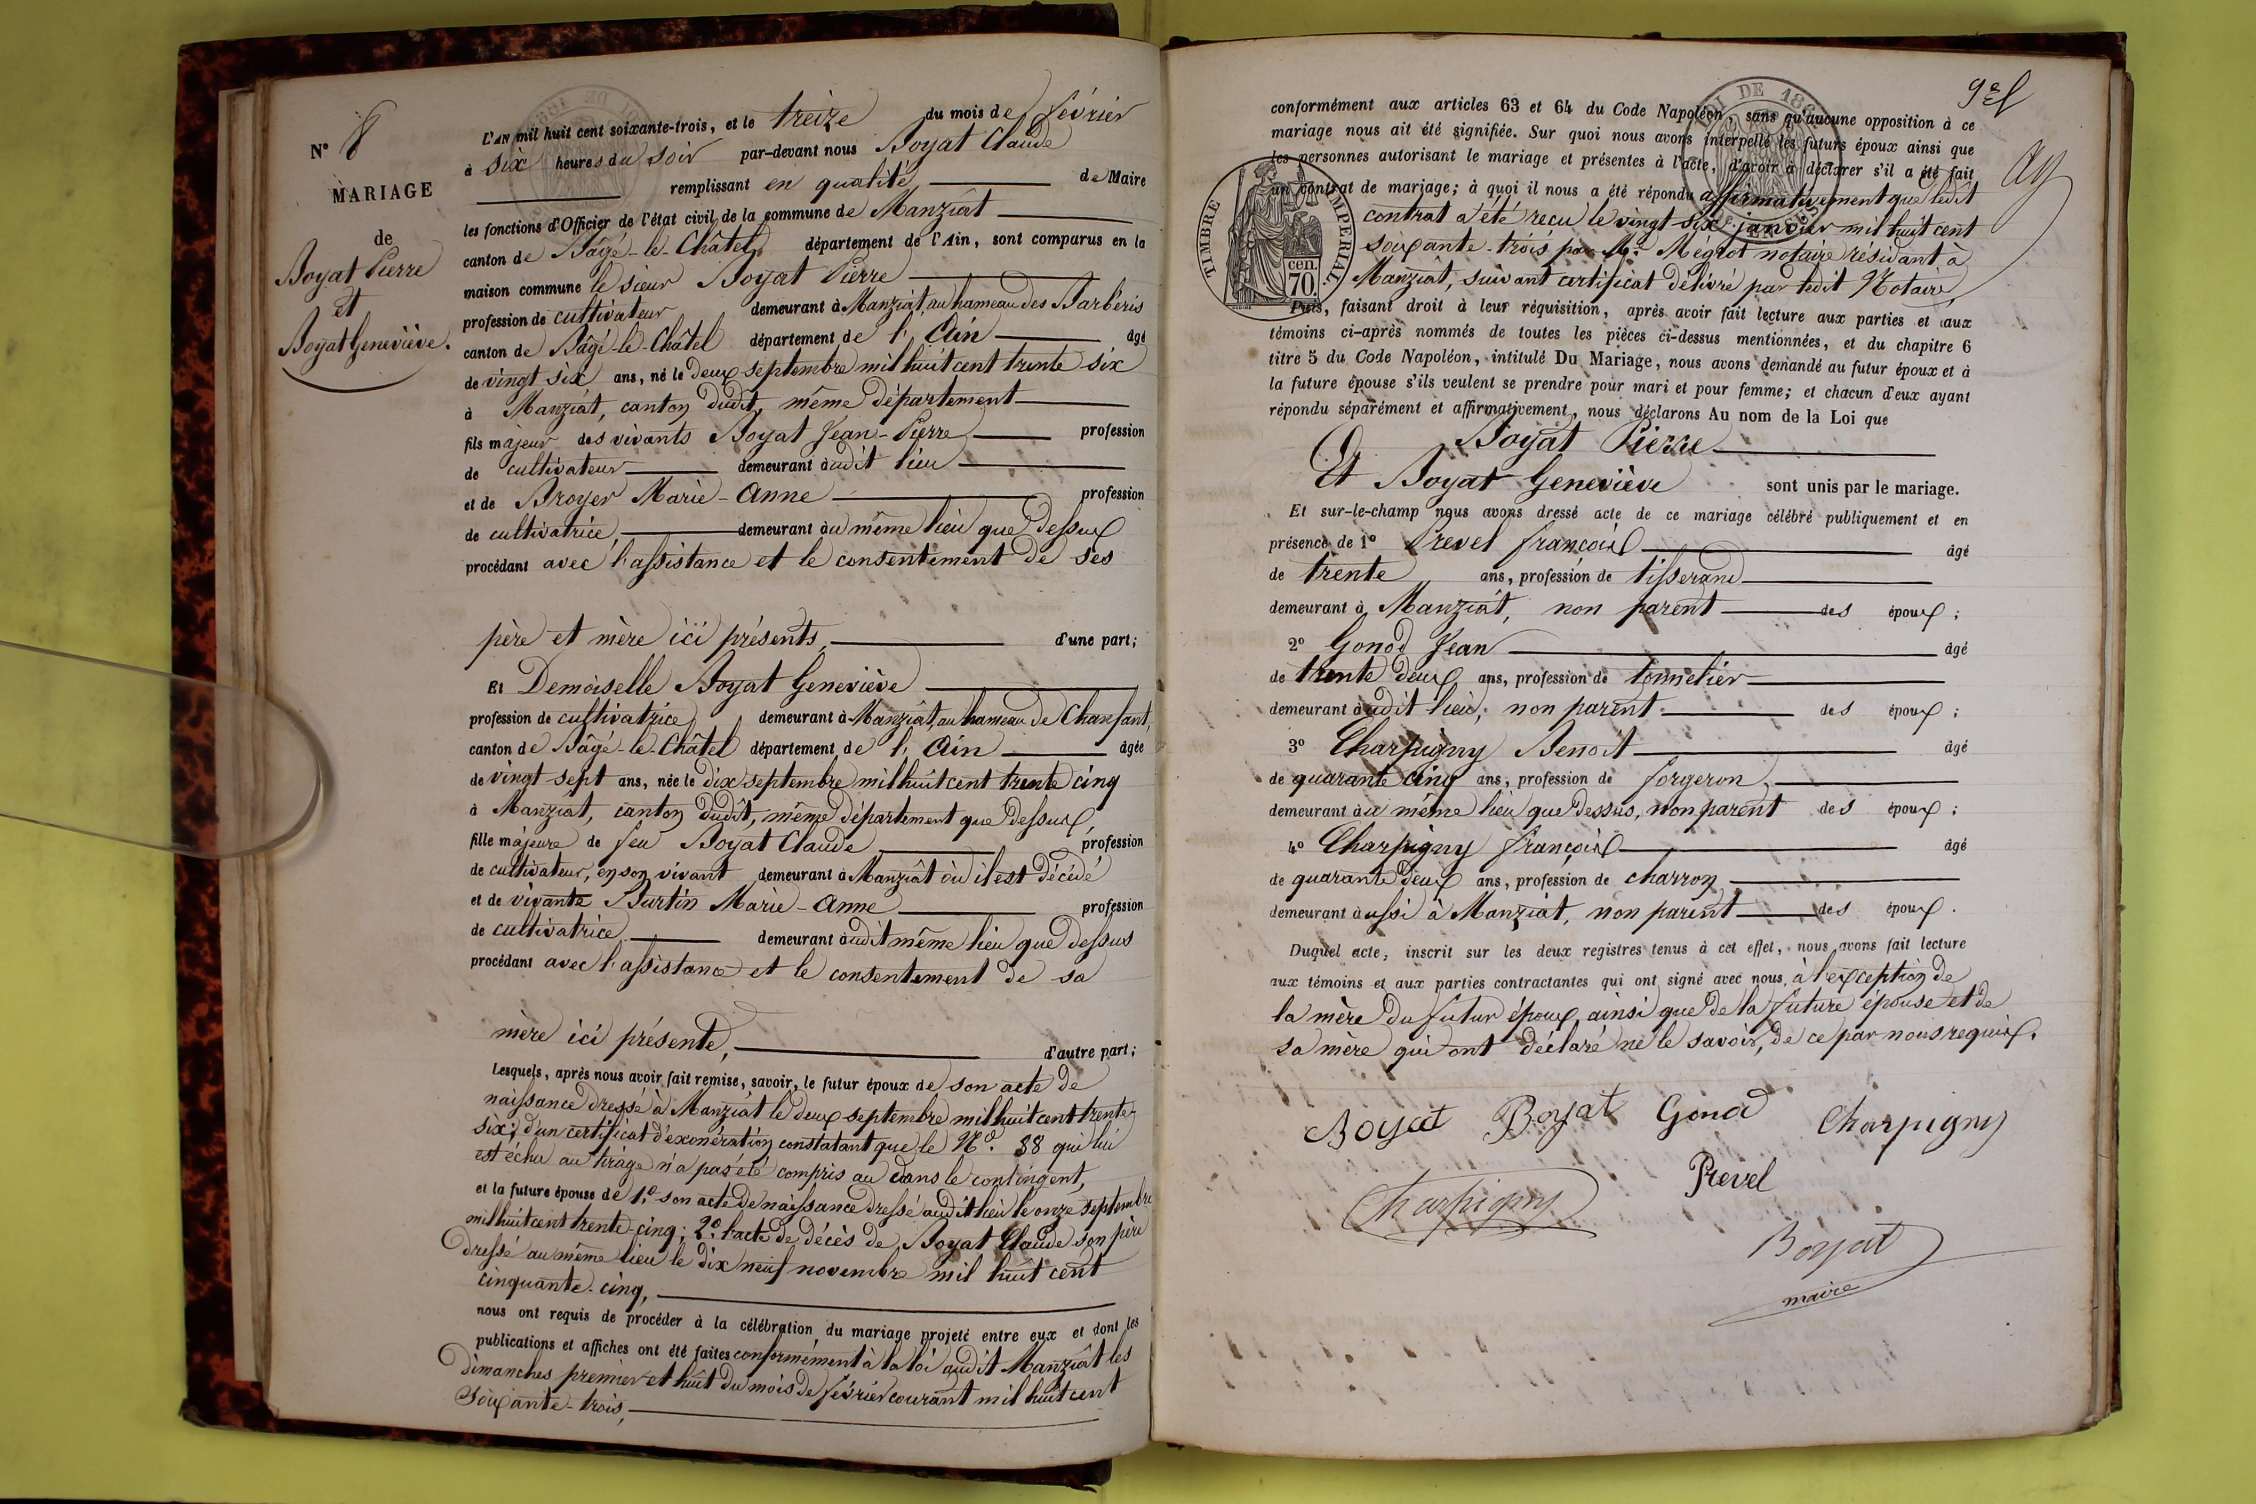 N° 8
MARIAGE
de
Boyat Pierre
et
Boyat Geneviève.
L'AN mil huit cent soixante-trois, et le treize du mois de février
à six heures du soir par-devant nous Boyat Claude
remplissant en qualité de Maire
les fonctions d'Officier de l'état civil de la commune de Manziat
canton de Bâgé-le-Châtel, département de l'Ain, sont comparus en la
maison commune le sieur Boyat Pierre
profession de cultivateur demeurant à Manziat, au hameau des Barbéris
canton de Bâgé-le-Châtel département de l'Ain âgé
de vingt six ans, né le deux septembre mil huit cent trente six
à Manziat, canton dudit, même département
fils majeur des vivants Boyat Jean-Pierre profession
de cultivateur demeurant audit lieu
et de Broyer Marie-Anne profession
de cultivatrice, demeurant au même lieu que dessus
procédant avec l'assistance et le consentement de ses
père et mère ici présents, d'une part;
Et Demoiselle Boyat Geneviève
profession de cultivatrice, demeurant à Manziat, au hameau de Chanfant,
canton de Bâgé-le-Châtel département de l'Ain âgée
de vingt sept ans, née le dix septembre mil huit cent trente cinq
à Manziat, canton dudit, même département que dessus,
fille majeure de feu Boyat Claude profession
de cultivateur, en son vivant demeurant à Manziat où il est décédé
et de vivante Burtin Marie-Anne profession
de cultivatrice demeurant audit même lieu que dessus
procédant avec l'assistance et le consentement de sa
mère ici présente, d'autre part;
Lesquels, après nous avoir fait remise, savoir, le futur époux de son acte de
naissance dressé à Manziat le deux septembre mil huit cent trente-
six; d'un certificat d'exonération constatant que le N° 88 qui lui
est échu au tirage n'a pas été compris au dans le contingent,
et la future épouse de 1° son acte de naissance dressé audit lieu le onze septembre
mil huit cent trente-cinq; 2° l'acte de décès de Boyat Claude son père
dressé au même lieu le dix neuf novembre mil huit cent
cinquante-cinq,
nous ont requis de procéder à la célébration du mariage projeté entre eux et dont les
publications et affiches ont été faites conformément à la loi audit Manziat les
dimanches premier et huit du mois de février courant mil huit cent
soixante-trois,
conformément aux articles 63 et 64 du Code Napoléon, sans qu'aucune opposition à ce
mariage nous ait été signifiée. Sur quoi nous avons interpellé les futurs époux ainsi que
les personnes autorisant le mariage et présentes à l'acte, d'avoir à déclarer s'il a été fait
un contrat de mariage; à quoi il nous a été répondu affirmativement que ledit
contrat a été reçu le vingt-six janvier mil huit cent
soixante-trois par Me. Mégrot notaire résidant à
Manziat, suivant certificat délivré par ledit Notaire,
TIMBRE IMPERIAL
cen. 70
Puis, faisant droit à leur réquisition, après avoir fait lecture aux parties et aux
témoins ci-après nommés de toutes les pièces ci-dessus mentionnées, et du chapitre 6
titre 5 du Code Napoléon, intitulé Du Mariage, nous avons demandé au futur époux et à
la future épouse s'ils veulent se prendre pour mari et pour femme; et chacun d'eux ayant
répondu séparément et affirmativement, nous déclarons Au nom de la Loi que
Boyat Pierre
Et Boyat Geneviève sont unis par le mariage.
Et sur-le-champ nous avons dressé acte de ce mariage célébré publiquement et en
présence de 1° Prevel françois âgé
de trente ans, profession de tisserand
demeurant à Manziat, non parent des époux;
2° Gonod Jean âgé
de trente deux ans, profession de tonnelier
demeurant audit lieu, non parent des époux;
3° Charpigny Benoit âgé
de quarante cinq ans, profession de forgeron
demeurant au même lieu que dessus, non parent des époux;
4° Charpigny françois âgé
de quarante deux ans, profession de charron
demeurant aussi à Manziat, non parent des époux.
Duquel acte, inscrit sur les deux registres tenus à cet effet, nous avons fait lecture
aux témoins et aux parties contractantes qui ont signé avec nous, à l'exception de
la mère du futur époux, ainsi que de la future épouse et de
sa mère qui ont déclaré ne le savoir, de ce par nous requis.
Boyat Boyat Gonod Charpigny
Prevel
Charpigny
Boyat
maire